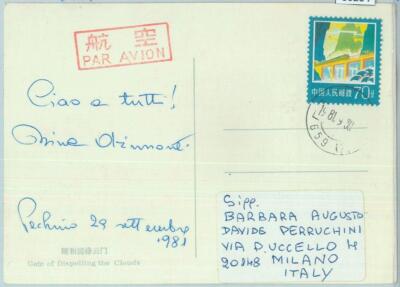 航空
PAR AVION
中国人民邮政 70分
Ciao a tutti!
Pechino 29 settembre
1981
颐和园排云门
Gate of Dispelling the Clouds
Sigg.
BARBARA AUGUSTO
DAVIDE PERRUCHINI
VIA P. UCCELLO 4
20148 MILANO
ITALY